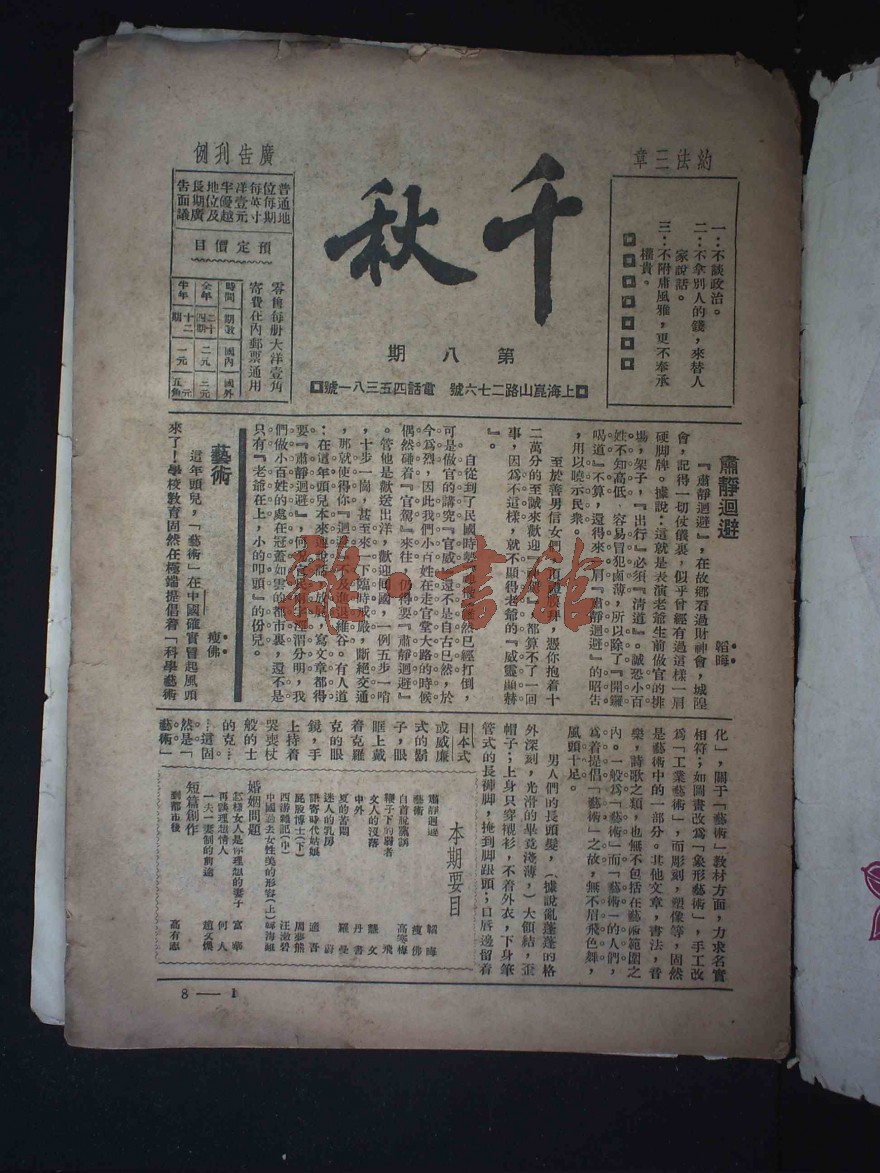 約法三章
一：不談政治。
二：不拿別人的錢，來替人
家說話。
三：不附庸風雅，更不奉承
權貴。
千秋
第八期
上海崑山路二七六號 電話四五三八一號
廣告刊例
普通地
位每期
每英寸
洋壹元
半優越
地位及
長期廣
告面議
預定價目
零售每册大洋壹角
寄費在內郵票通用
時間 期數 國內 國外
全年 二十四期 二元 三元
半年 十二期 一元 一元五角
肅靜迴避
韜晦
『肅靜迴避』，在故鄉看過財神會，城隍
會，記得一切仗儀裏，似乎曾經有過這樣一肩
硬脚牌。據說：這就是表演老爺生前做官的排
場，架子，『出行』必須『清道』。誠恐小百
姓不知高低，容易冒犯鹵薄，所以除了『開鑼
喝道』不算，還得來一肩『肅靜迴避』的昭告
，用以曉示民衆。
至於善男信女『頂禮膜拜，憑你抱着十
二萬分的至誠來歡迎『神駕』，都算不了一回
事，因爲不這樣，就不顯得老爺的『威靈顯赫
』。
自從到了民國時
偶然已經打倒，
可是做官的講究『官威』，還不是自古已然，於
今爲烈，因此我們小百姓在走官堂大路的時候
偶然碰着『官駕』來往，仍得要『肅靜迴避』
。管他是歡送出洋，歡迎回國，一例五步一哨
，十步一崗，甚至來一下臨時戒嚴，斷絕交通
，那就使得你『迴避』不及，進退維谷。有人道
：在這年頭兒本來連說話，放屁，寫文章都得
要『肅靜迴避』，何况官民兩字涇渭分明，我
們做小百姓的處在冠蓋如雲的都市裏，還不是
只有『老爺在上，小的叩頭』的份兒。
藝術
瘦佛
這年頭兒，「藝術」在中國確實冒起風頭
來了！學校敎育固然在極端提倡着「科學藝術
化」，關于「藝術」敎材方面，力求名實
相符；如圖畫改爲「象形藝術」，手工改
爲「工業藝術」，而彫刻，塑像等，固然
是藝術中的一部分。其他文章，書法，音
樂，詩歌之類，也無不包括在藝術範圍之
內。一般爲「藝術」而「藝術」的人們，
爲着提倡「藝術」之故，無不眉飛色舞，
風頭十足。
男人們的長頭髮，（據說亂蓬蓬的格
外深刻，光滑的畢竟淺薄，）大領結，歪
帽子；上身只穿襯衫，不着外衣，下身筆
管式的長褲脚，拖到脚跟頭；口唇邊留着
日本式
或威廉
式的鬍
子，眼
眶上戴
着克羅
克的眼
鏡，手
上持着
哭喪杖
般的士
的克…
…這固
然是「
藝術」
本期要目
肅靜迴避 韜晦
藝術 瘦佛
白首說風韻 高寒梅
鞭子下的弱者 飛
文人的沒落 醫文
中外 丹書
夏的苦悶 羅曼
迷人的乳房 蔚
語習時代姑娘 适晋
屁股博士（下） 周夢熊
西游雜記（中） 汪澂碧
中國過去女性美的形容（上）
婚姻問題
怎樣女人是你理想的妻子 富華
再談理想情人 何人
一夫一妻制的前途 趙文煥
短篇創作
到都市後 高有志
8 — 1